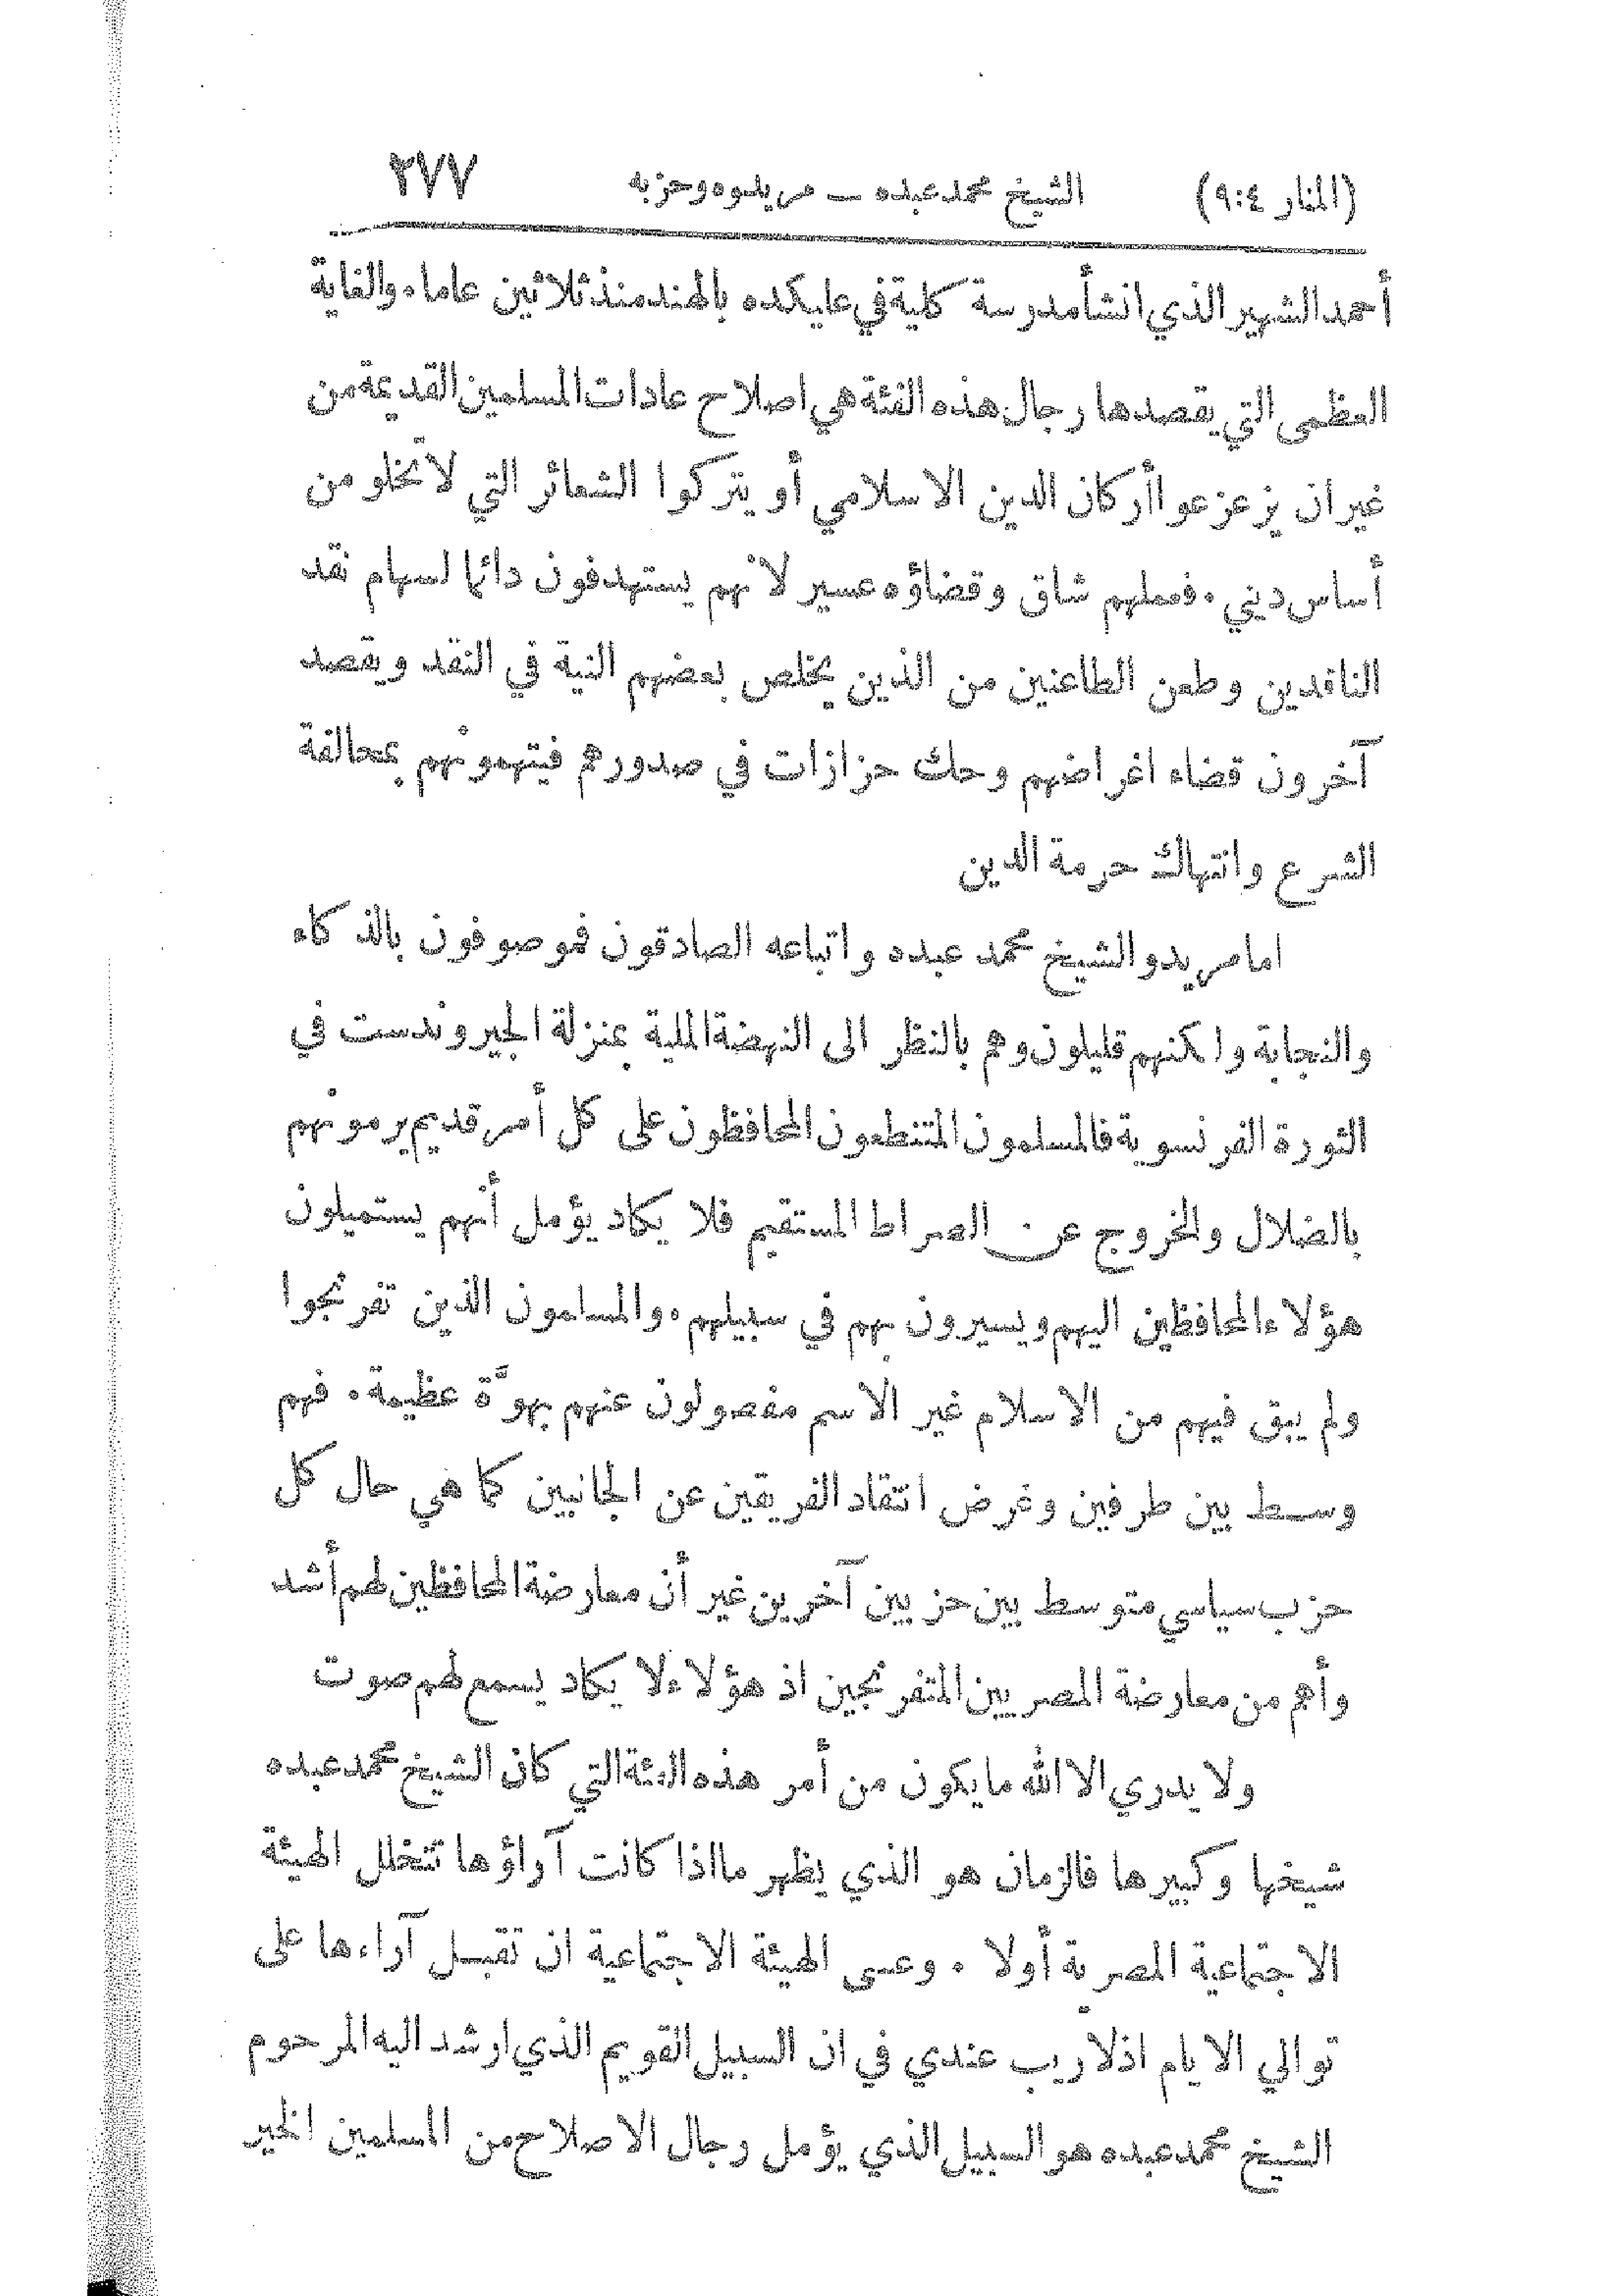 (المنار ٤:٩) الشيخ محمد عبده — مريدوه وحزبه ٢٧٧
أحمد الشهير الذي انشأ مدرسة كلية في عليكده بالهند منذ ثلاثين عاما. والغاية
العظمى التي يقصدها رجال هذه الفئة هي اصلاح عادات المسلمين القديمة من
غير ان يزعزعوا أركان الدين الاسلامي أو يتركوا الشعائر التي لا تخلو من
أساس ديني. فعملهم شاق وقضاؤه عسير لانهم يستهدفون دائما لسهام نقد
الناقدين وطعن الطاعنين من الذين يخلص بعضهم النية في النقد ويقصد
آخرون قضاء اغراضهم وحك حزازات في صدورهم فيتهمونهم بمخالفة
الشرع وانتهاك حرمة الدين
اما مريدو الشيخ محمد عبده واتباعه الصادقون فموصوفون بالذكاء
والنجابة ولكنهم قليلون وهم بالنظر الى النهضة الملية بمنزلة الجيروندست في
الثورة الفرنسوية فالمسلمون المتنطعون المحافظون على كل أمر قديم يرمونهم
بالضلال والخروج عن الصراط المستقيم فلا يكاد يؤمل أنهم يستميلون
هؤلاء المحافظين اليهم ويسيرون بهم في سبيلهم. والمسلمون الذين تفرنجوا
ولم يبق فيهم من الاسلام غير الاسم مفصولون عنهم بهوَّة عظيمة. فهم
وسط بين طرفين وغرض انتقاد الفريقين عن الجانبين كما هي حال كل
حزب سياسي متوسط بين حزبين آخرين غير أن معارضة المحافظين لهم أشد
وأهم من معارضة المصريين المتفرنجين اذ هؤلاء لا يكاد يسمع لهم صوت
ولا يدري الا الله ما يكون من أمر هذه الفئة التي كان الشيخ محمد عبده
شيخها وكبيرها فالزمان هو الذي يظهر ما اذا كانت آراؤها تتخلل الهيئة
الاجتماعية المصرية أولا. وعسى الهيئة الاجتماعية ان تقبل آراءها على
توالي الايام اذ لا ريب عندي في ان السبيل القويم الذي ارشد اليه المرحوم
الشيخ محمد عبده هو السبيل الذي يؤمل رجال الاصلاح من المسلمين الخير